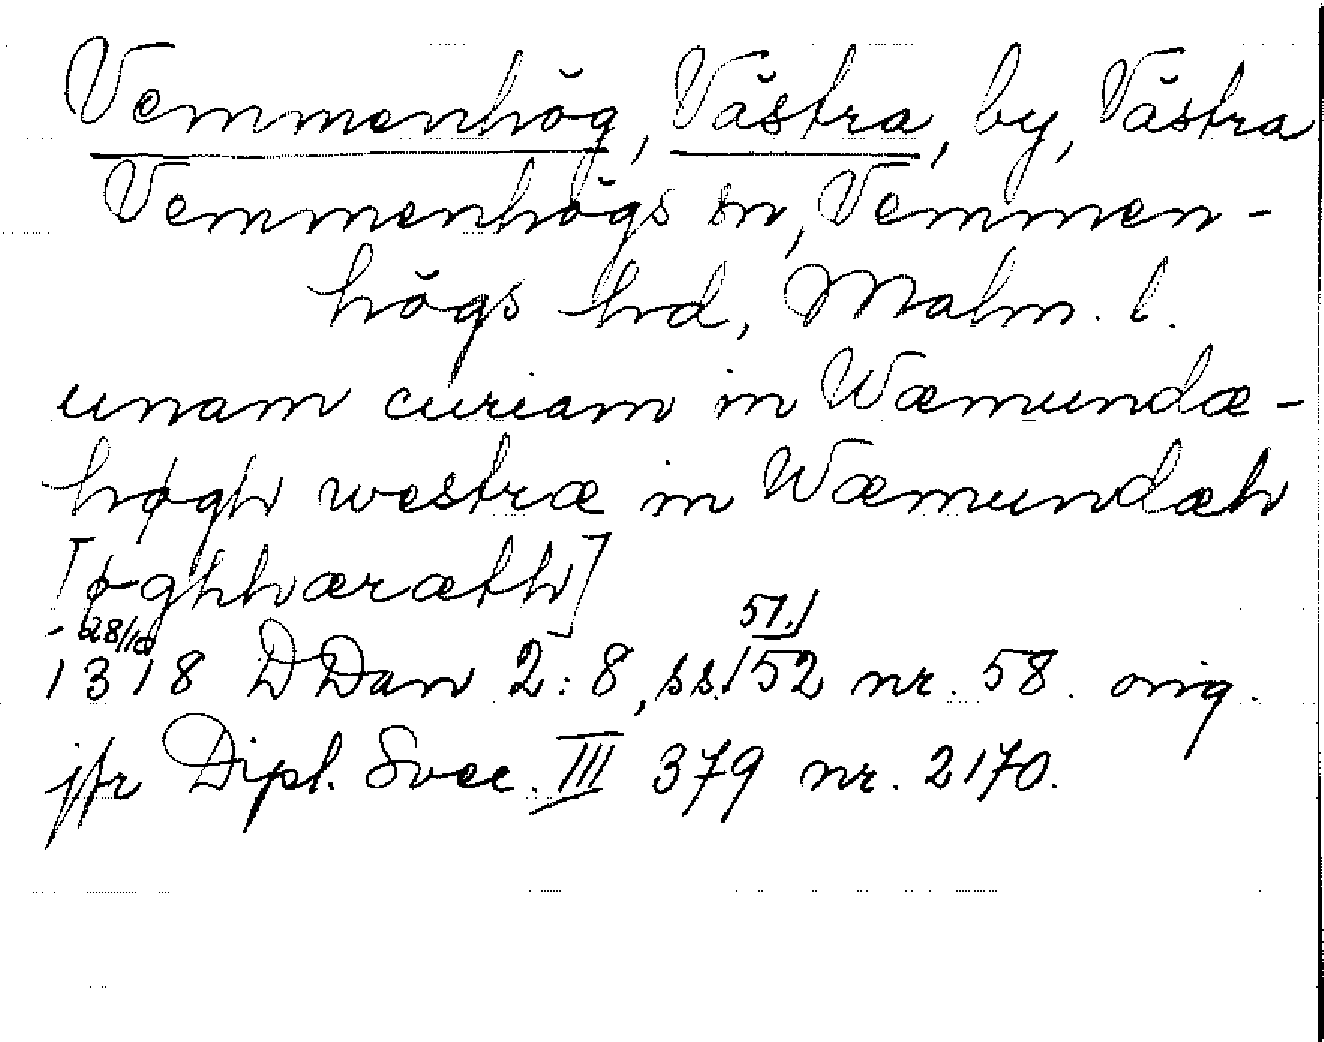 Vemmenhög, Västra, by, Västra
Vemmenhögs sn, Vemmen-
högs hd, Malm. l.
unam curiam in Wæmundæ-
høgh westræ in Wæmundæh
[øghhæræth]
28/10 51.
1318 DDan 2:8, ss. 52 nr. 58. orig.
jfr Dipl. Svec. III 379 nr. 2170.